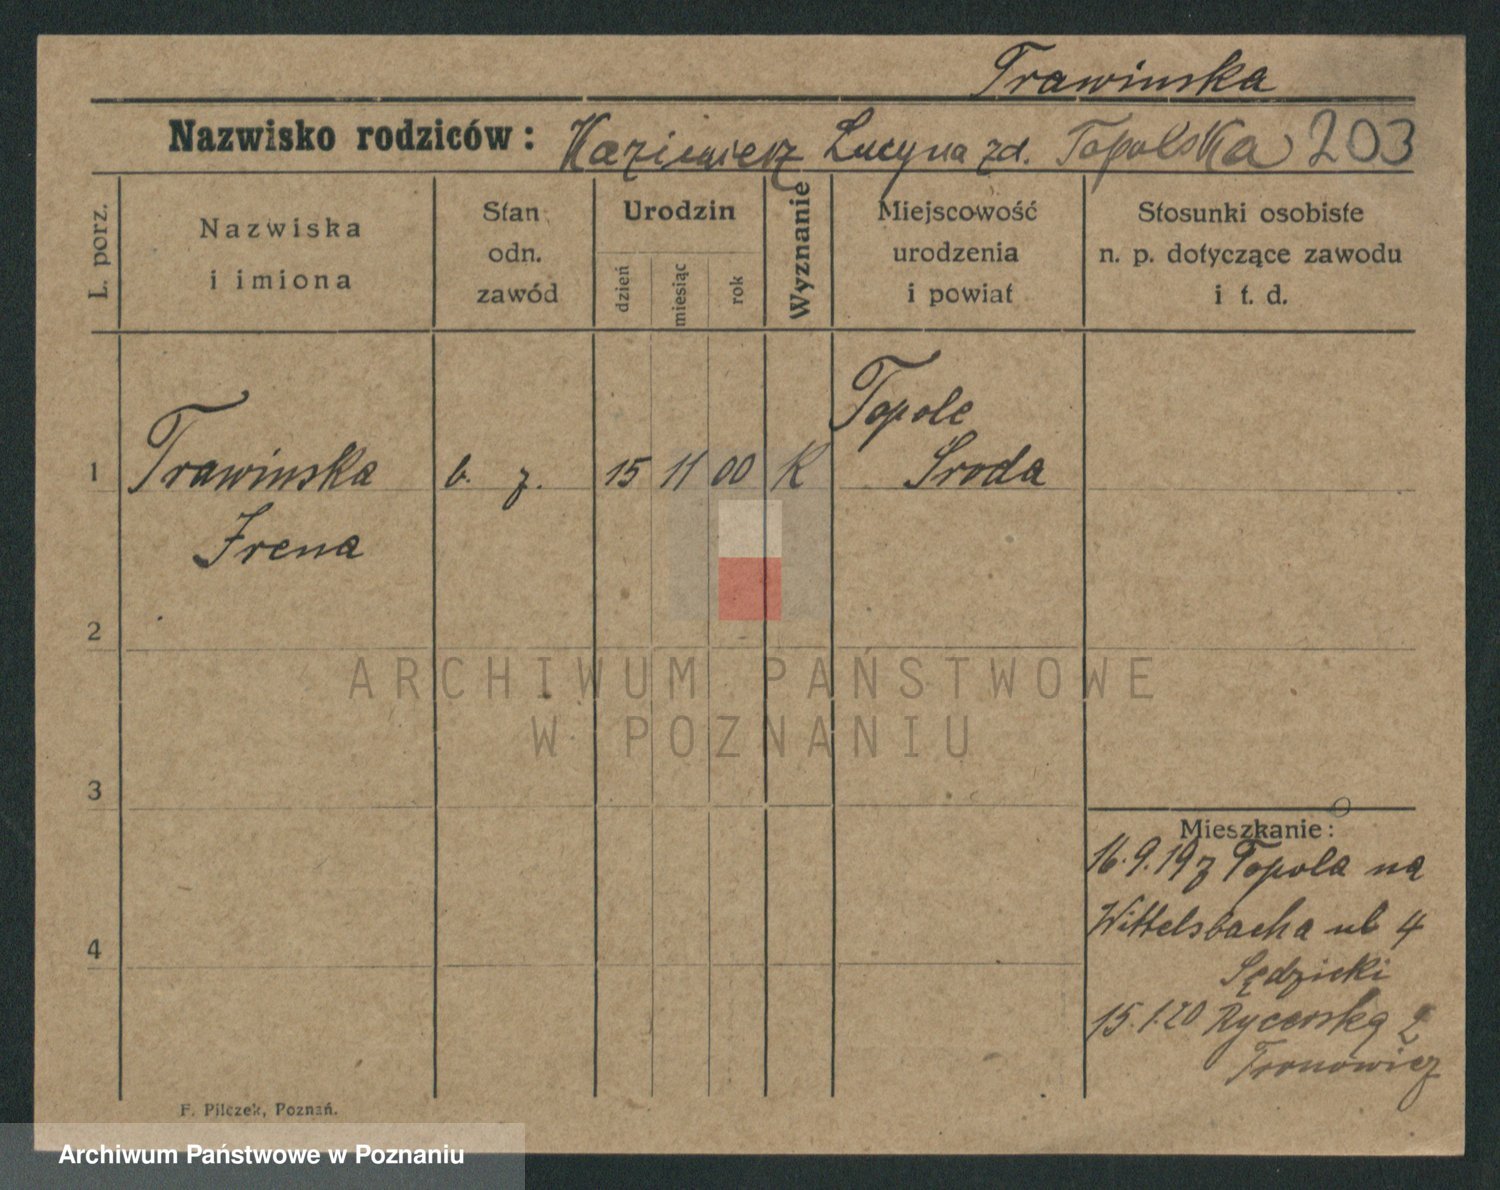 Trawinska
Nazwisko rodziców: Kazimierz Lucyna zd. Topolska 203
L. porz.
Nazwiska
i imiona
Stan
odn.
zawód
Urodzin
dzień
miesiąc
rok
Wyznanie
Miejscowość
urodzenia
i powiat
Stosunki osobiste
n. p. dotyczące zawodu
i t. d.
Topole
1 Trawinska b. z. 15 11 00 K Sroda
Irena
2
ARCHIWUM PAŃSTWOWE
W POZNANIU
3
Mieszkanie:
16.9.19 z Topola na
Wittelsbacha ul 4
4
Sędzicki
15.1.20 Rycerską 2
Tronowicz
F. Pilczek, Poznań.
Archiwum Państwowe w Poznaniu